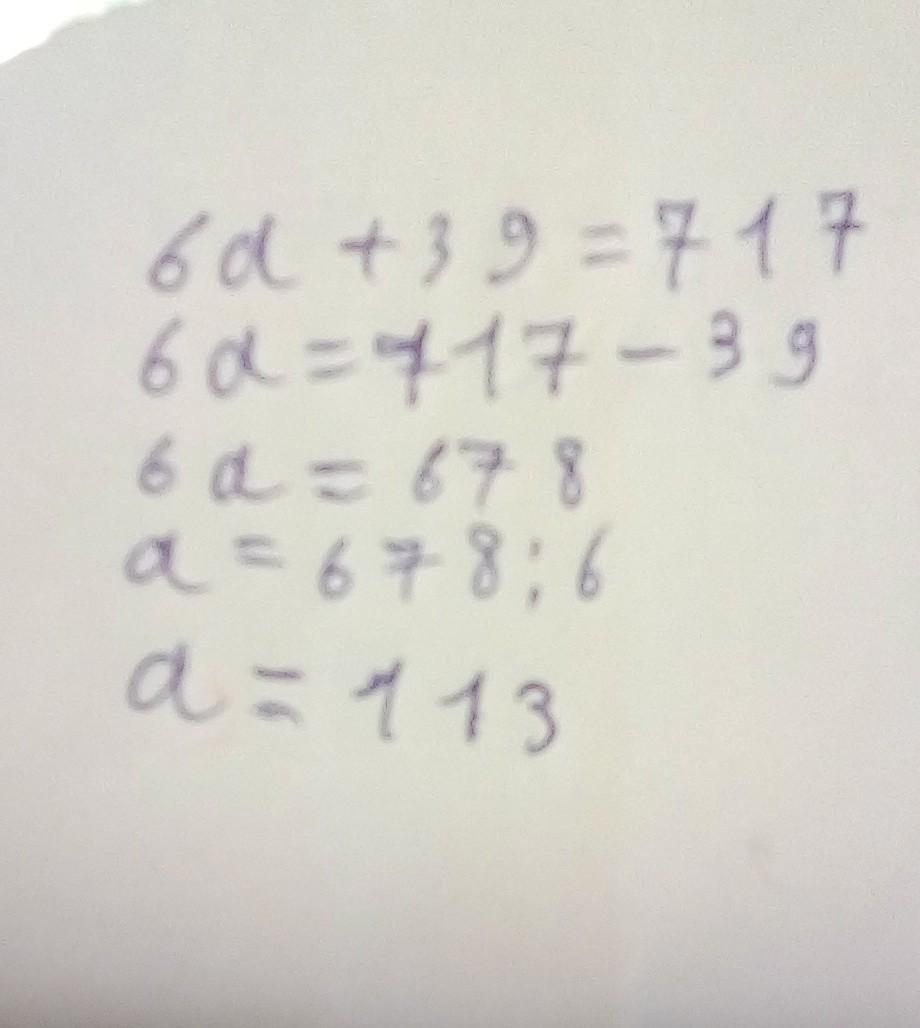 6a + 39 = 717
6a = 717 - 39
6a = 678
a = 678 : 6
a = 113